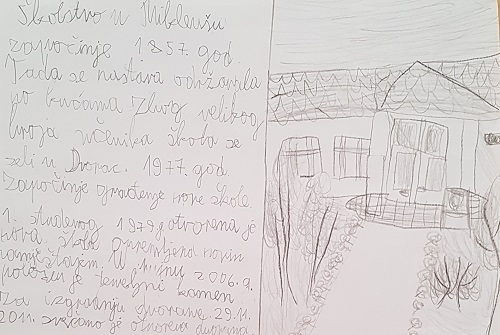 Školstvo u Mikleušu
započinje 1857. god.
Tada se nastava održavala
po kućama Zbog velikog
broja učenika škola se
seli u Dvorac. 1977. god.
Započinje izgradnja nove škole
1. studenog 1979 otvorena je
nova škola opremljena novim
namještajem. U lipnju 2006. g.
položen je temeljni kamen
za izgradnju dvorane. 29. 11.
2011. svečano je otvorena dvorana